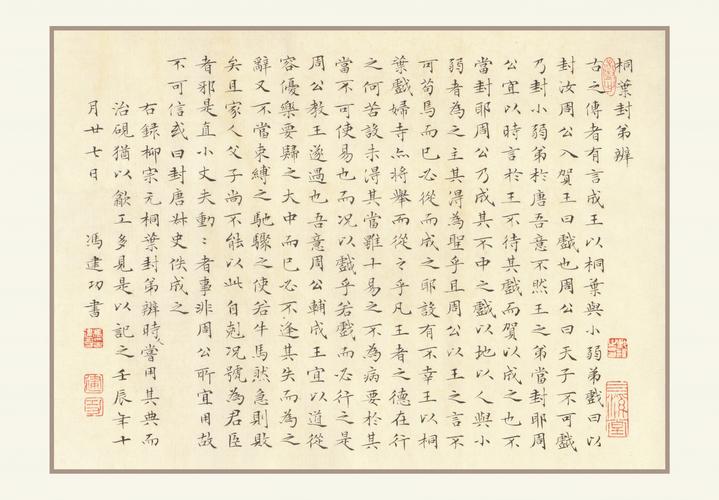 桐葉封弟辨
古之傳者有言成王以桐葉與小弱弟戲曰以
封汝周公入賀王曰戲也周公曰天子不可戲
乃封小弱弟於唐吾意不然王之弟當封耶周
公宜以時言於王不待其戲而賀以成之也不
當封耶周公乃成其不中之戲以地以人與小
弱者為之主其得為聖乎且周公以王之言不
可苟焉而已必從而成之耶設有不幸王以桐
葉戲婦寺亦將舉而從之乎凡王者之德在行
之何若設未得其當雖十易之不為病要於其
當不可使易也而況以戲乎若戲而必行之是
周公教王遂過也吾意周公輔成王宜以道從
容優樂要歸之大中而已必不逢其失而為之
辭又不當束縛之馳驟之使若牛馬然急則敗
矣且家人父子尚不能以此自剋況號為君臣
者邪是直小丈夫動〻者事非周公所宜用故
不可信或曰封唐叔史佚成之
右錄柳宗元桐葉封弟辨時嘗用其典而
治硯猶以工多見是以記之壬辰年十
月廿七日 馮建功書